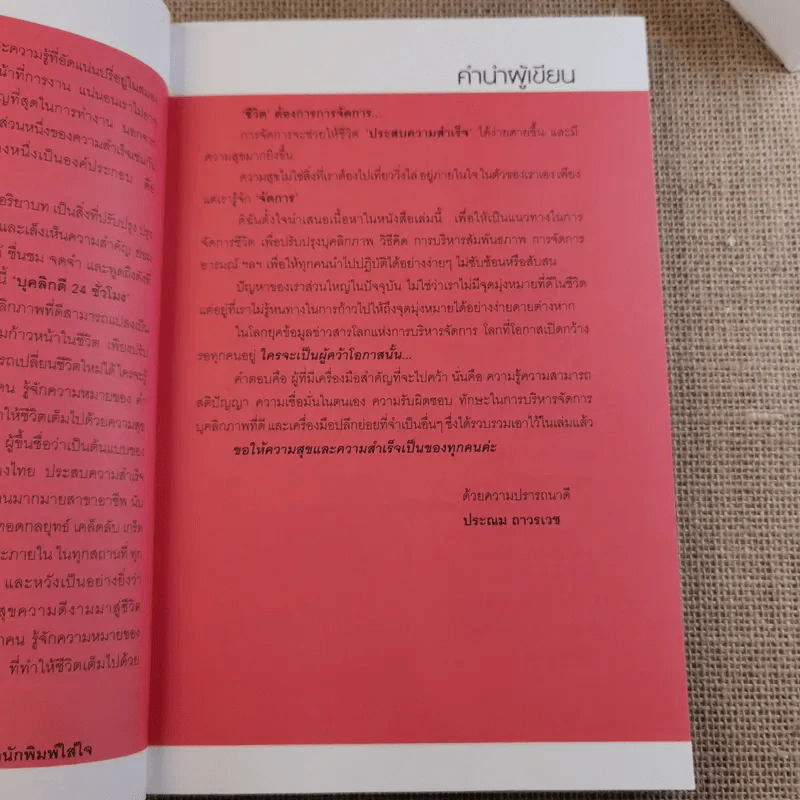 ะความรู้ที่อัดแน่นปรี่อยู่ในสมอง
น้าที่การงาน แน่นอนเราไม่อาจ
ญที่สุดในการทำงาน นอกจาก
ส่วนหนึ่งของความสำเร็จเช่นกัน
างหนึ่งเป็นองค์ประกอบ คือ
อริยาบท เป็นสิ่งที่ปรับปรุง ปรุง
และเล็งเห็นความสำคัญ ยอม
ชื่นชม จดจำ และพูดถึงดังที่
นี้ 'บุคลิกดี 24 ชั่วโมง'
ลิกภาพที่ดีสามารถแปลงเป็น
มก้าวหน้าในชีวิต เพียงปรับ
รถเปลี่ยนชีวิตใหม่ได้ ใครจะรู้
คน รู้จักความหมายของ คำ
าให้ชีวิตเต็มไปด้วยความสุข
ผู้ขึ้นชื่อว่าเป็นต้นแบบของ
งไทย ประสบความสำเร็จ
นมากมายสาขาอาชีพ นับ
ทอดกลยุทธ์ เคล็ดลับ เกร็ด
ะภายใน ในทุกสถานที่ ทุก
และหวังเป็นอย่างยิ่งว่า
สุขความดีงามมาสู่ชีวิต
กคน รู้จักความหมายของ
ที่ทำให้ชีวิตเต็มไปด้วย
นักพิมพ์ใส่ใจ
คำนำผู้เขียน
'ชีวิต' ต้องการการจัดการ...
การจัดการจะช่วยให้ชีวิต 'ประสบความสำเร็จ' ได้ง่ายดายขึ้น และมี
ความสุขมากยิ่งขึ้น
ความสุขไม่ใช่สิ่งที่เราต้องไปเที่ยววิ่งไล่ อยู่ภายในใจ ในตัวของเราเอง เพียง
แต่เรารู้จัก 'จัดการ'
ดิฉันตั้งใจนำเสนอเนื้อหาในหนังสือเล่มนี้ เพื่อให้เป็นแนวทางในการ
จัดการชีวิต เพื่อปรับปรุงบุคลิกภาพ วิธีคิด การบริหารสัมพันธภาพ การจัดการ
อารมณ์ ฯลฯ เพื่อให้ทุกคนนำไปปฏิบัติได้อย่างง่ายๆ ไม่ซับซ้อนหรือสับสน
ปัญหาของเราส่วนใหญ่ในปัจจุบัน ไม่ใช่ว่าเราไม่มีจุดมุ่งหมายที่ดีในชีวิต
แต่อยู่ที่เราไม่รู้หนทางในการก้าวไปให้ถึงจุดมุ่งหมายได้อย่างง่ายดายต่างหาก
ในโลกยุคข้อมูลข่าวสารโลกแห่งการบริหารจัดการ โลกที่โอกาสเปิดกว้าง
รอทุกคนอยู่ ใครจะเป็นผู้คว้าโอกาสนั้น...
คำตอบคือ ผู้ที่มีเครื่องมือสำคัญที่จะไปคว้า นั่นคือ ความรู้ความสามารถ
สติปัญญา ความเชื่อมั่นในตนเอง ความรับผิดชอบ ทักษะในการบริหารจัดการ
บุคลิกภาพที่ดี และเครื่องมือปลีกย่อยที่จำเป็นอื่นๆ ซึ่งได้รวบรวมเอาไว้ในเล่มแล้ว
ขอให้ความสุขและความสำเร็จเป็นของทุกคนค่ะ
ด้วยความปรารถนาดี
ประณม ถาวรเวช